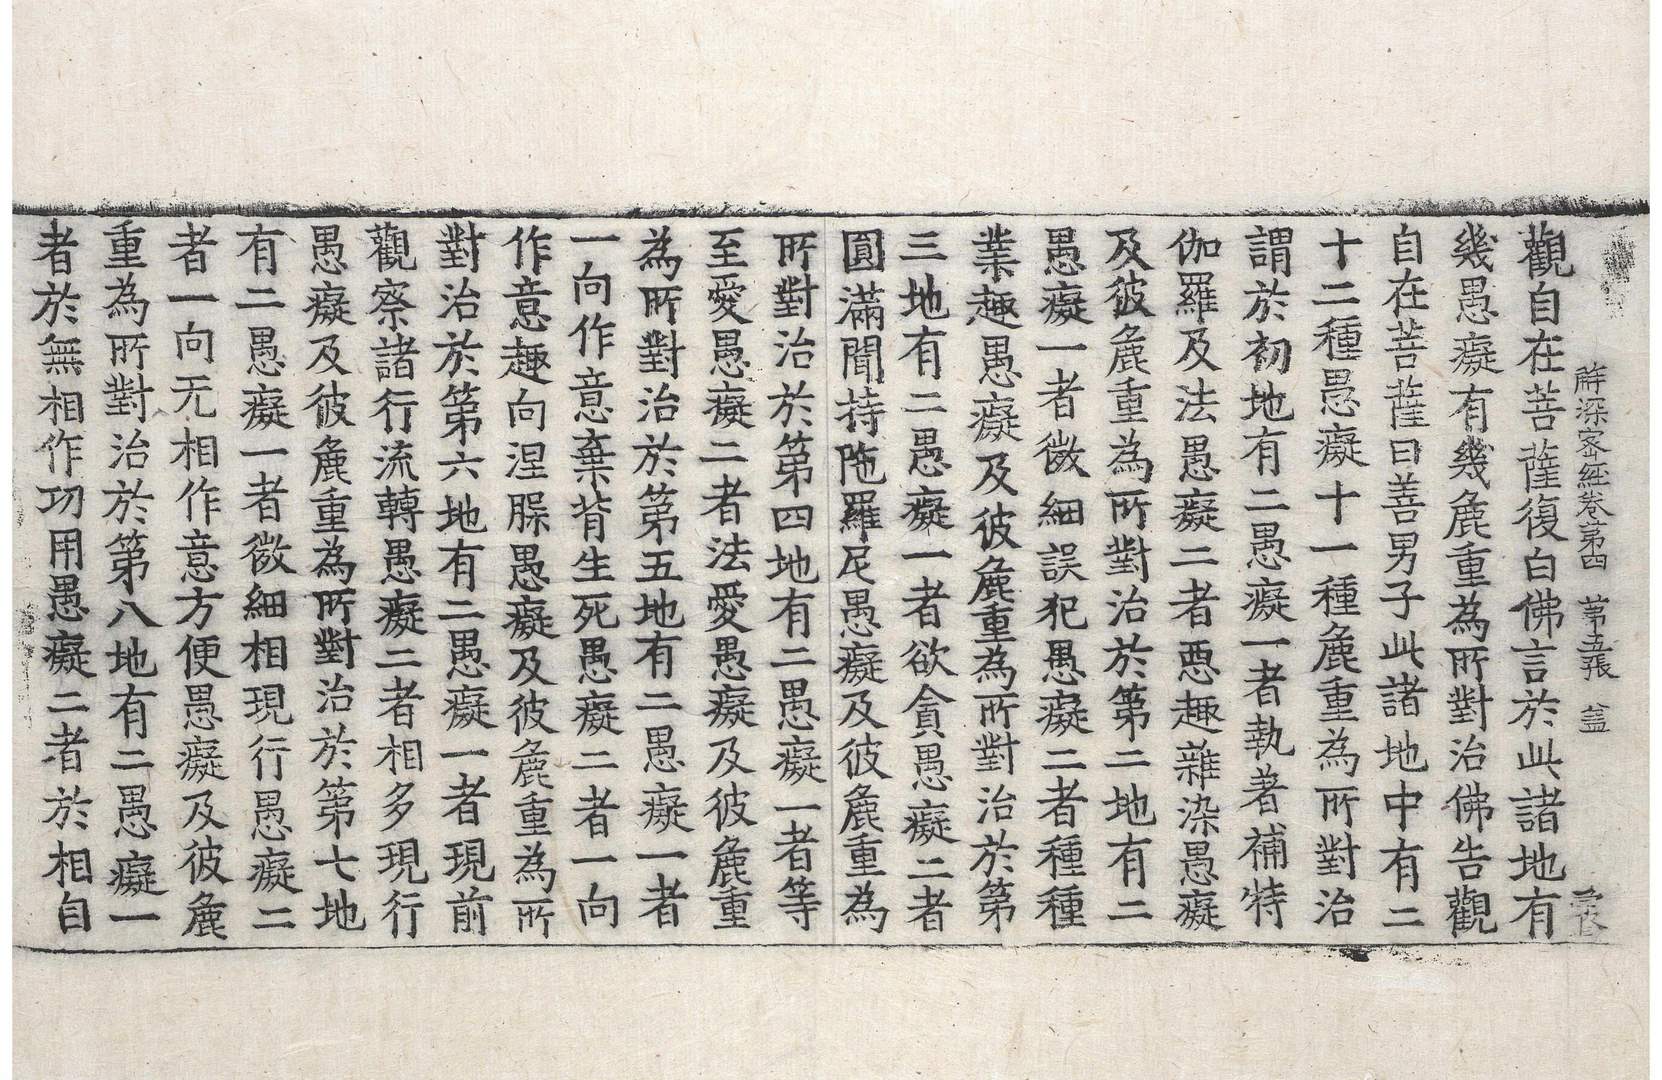 解深密經卷第四 第五張 葢
觀自在菩薩復白佛言於此諸地有
幾愚癡有幾麁重為所對治佛告觀
自在菩薩曰善男子此諸地中有二
十二種愚癡十一種麁重為所對治
謂於初地有二愚癡一者執著補特
伽羅及法愚癡二者惡趣雜染愚癡
及彼麁重為所對治於第二地有二
愚癡一者微細誤犯愚癡二者種種
業趣愚癡及彼麁重為所對治於第
三地有二愚癡一者欲貪愚癡二者
圓滿聞持陁羅尼愚癡及彼麁重為
所對治於第四地有二愚癡一者等
至愛愚癡二者法愛愚癡及彼麁重
為所對治於第五地有二愚癡一者
一向作意棄背生死愚癡二者一向
作意趣向涅槃愚癡及彼麁重為所
對治於第六地有二愚癡一者現前
觀察諸行流轉愚癡二者相多現行
愚癡及彼麁重為所對治於第七地
有二愚癡一者微細相現行愚癡二
者一向无相作意方便愚癡及彼麁
重為所對治於第八地有二愚癡一
者於無相作功用愚癡二者於相自